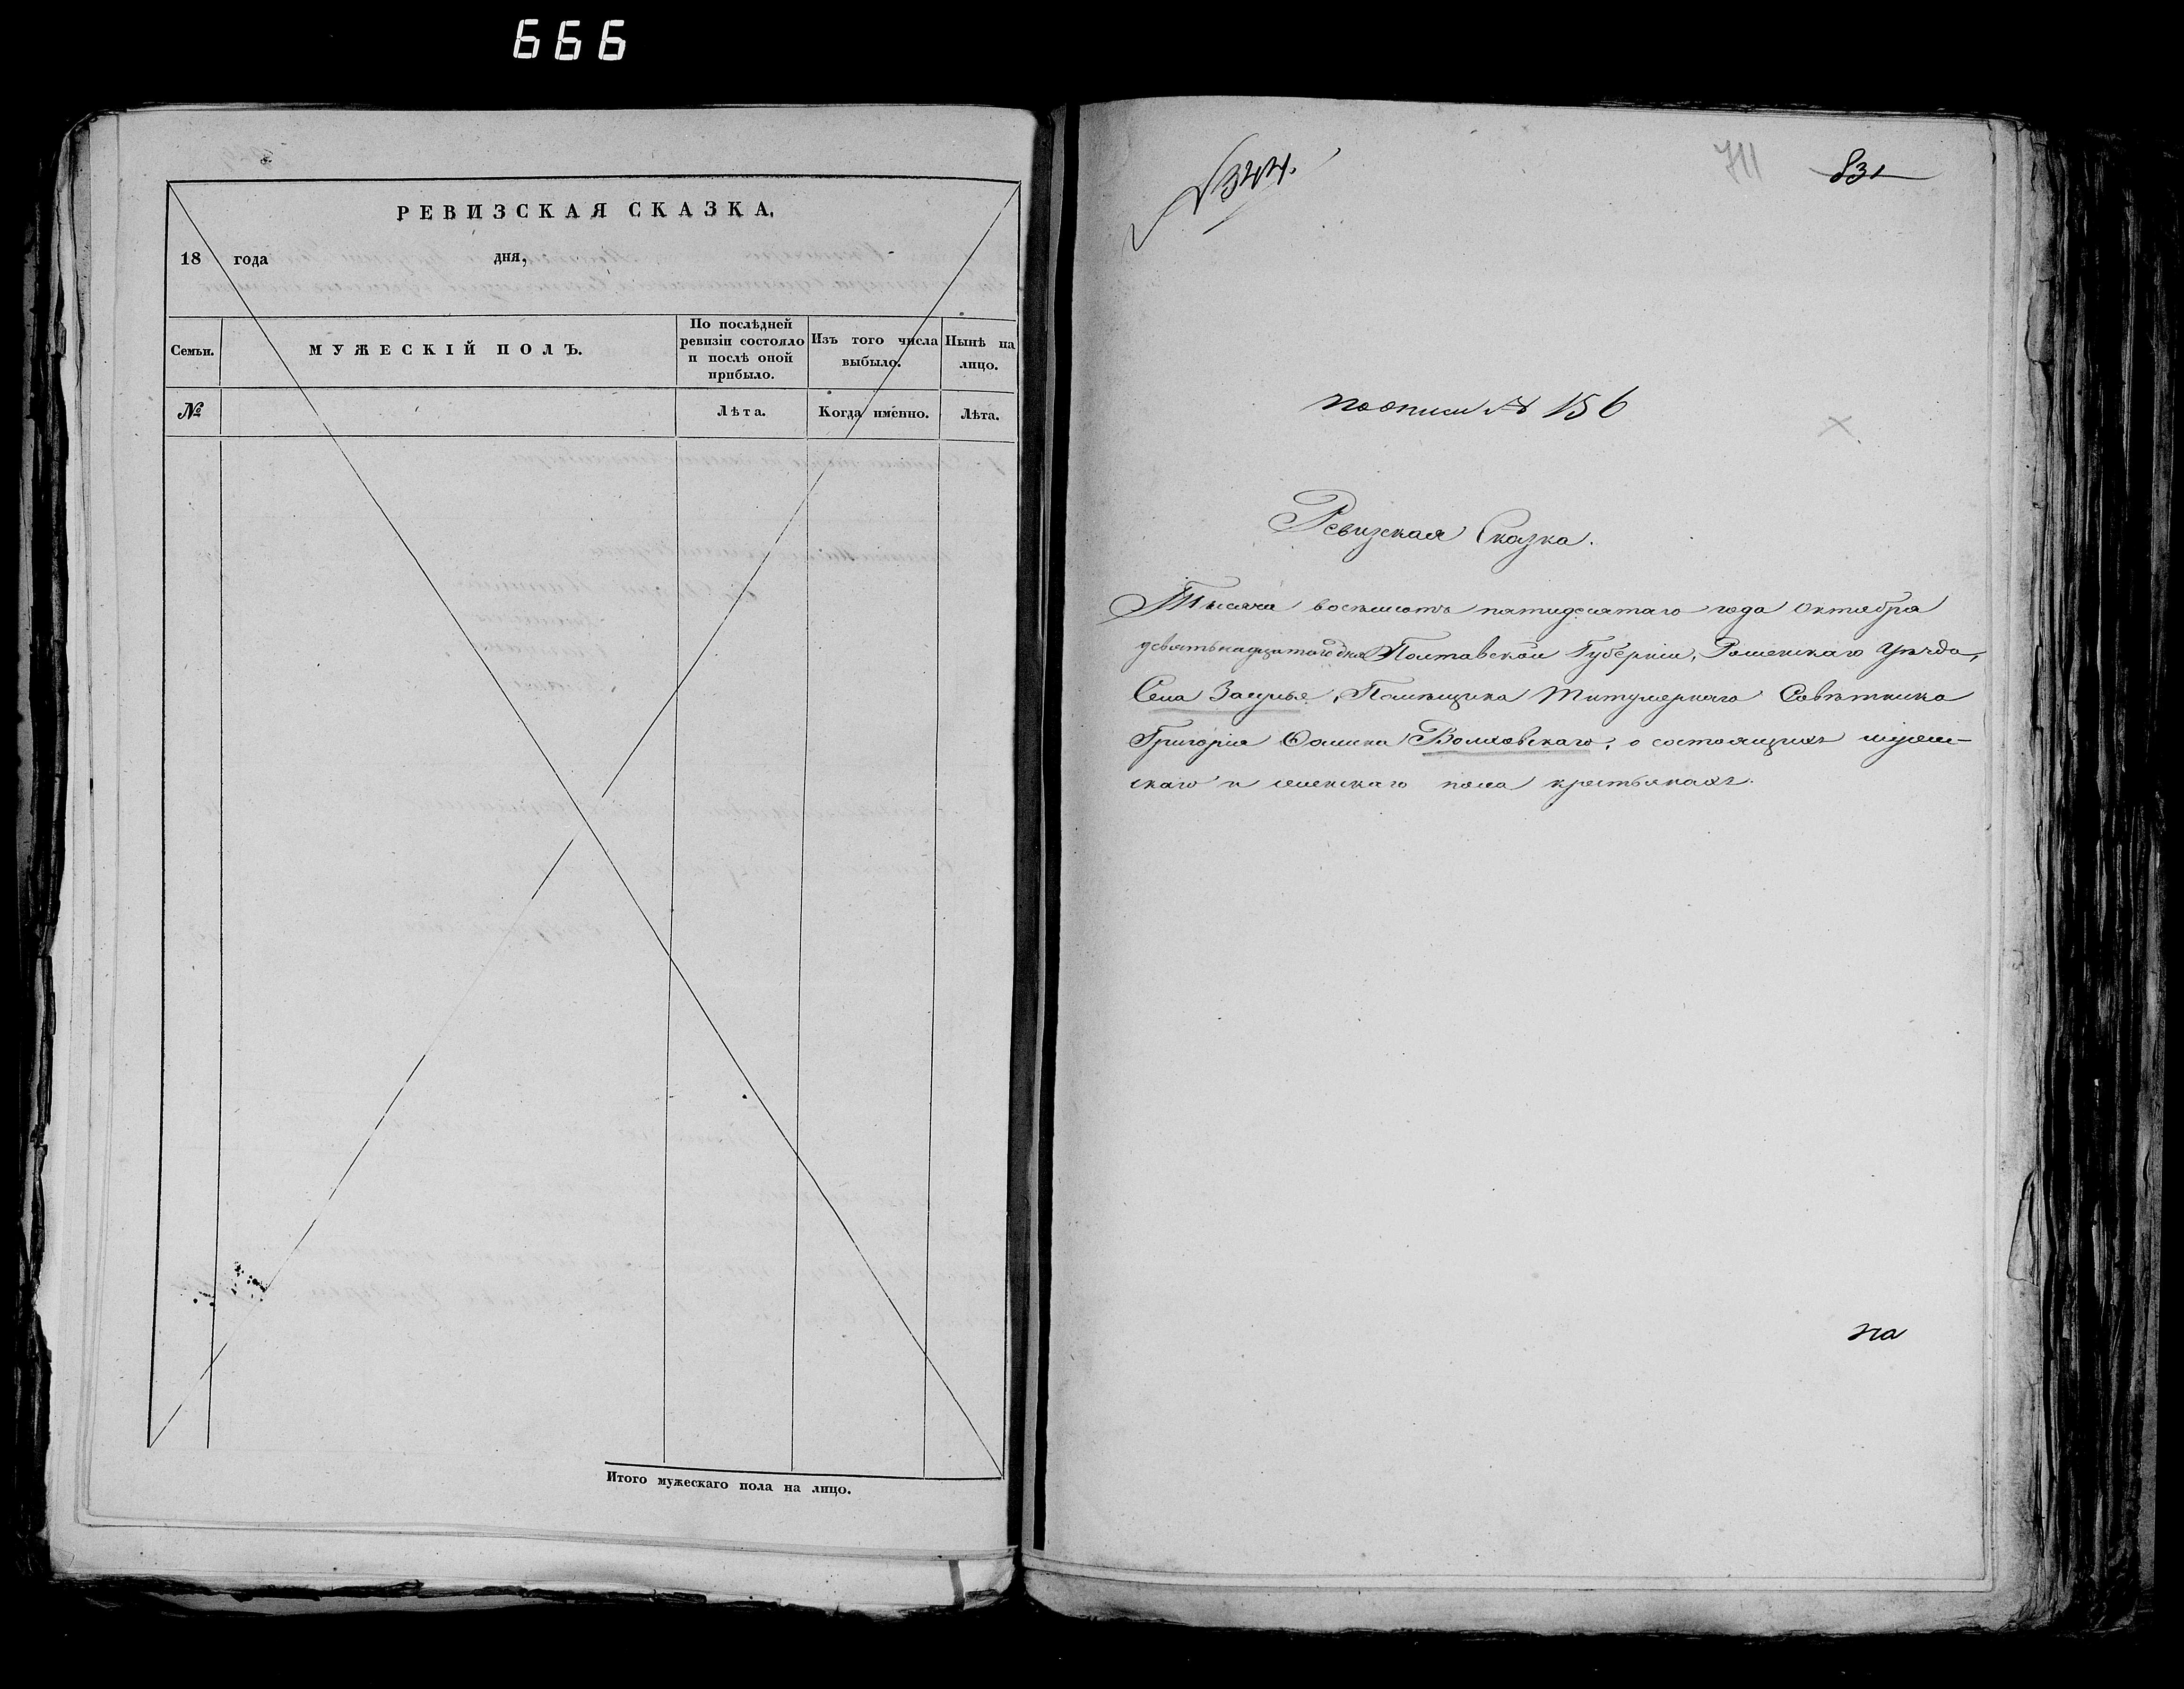 666
РЕВИЗСКАЯ СКАЗКА,
18 года дня,
Семьи.
МУЖЕСКІЙ ПОЛЪ.
По послѣдней
ревизіи состояло
и послѣ оной
прибыло.
Изъ того числа
выбыло.
Нынѣ на
лицо.
№
Лѣта.
Когда именно.
Лѣта.
Итого мужескаго пола на лицо.
№344.
711 831
по описи № 156
Ревизская Сказка.
Тысяча восемьсотъ пятидесятаго года Октября
девятьнадцатого дня Полтавской Губерніи, Роменскаго Уѣзда,
Села Засулье, Помѣщика Титулярнаго Совѣтника
Григорія Волховскаго, о состоящихъ мужес-
скаго и женскаго пола крестьянахъ.
на